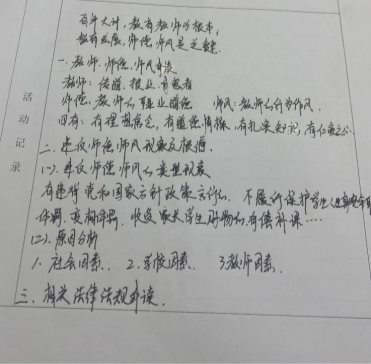 百年大计,教育教师为根本;
教育发展,师德师风是关键.
一、教师、师德、师风解读
教师:传道、授业、育者
师德:教师的职业道德 师风:教师的行为作风.
四有:有理想信念,有道德情操,有扎实知识,有仁爱之心.
二、违反师德师风现象及根源.
(一).违反师德师风的类型现象
有违背党和国家方针政策言行的.不履行保护学生人身安全职
体罚、变相体罚.收受家长学生财物的.有偿补课……
(二).原因分析
1.社会因素. 2.学校因素. 3.教师因素.
三.相关法律法规解读.
活动记录